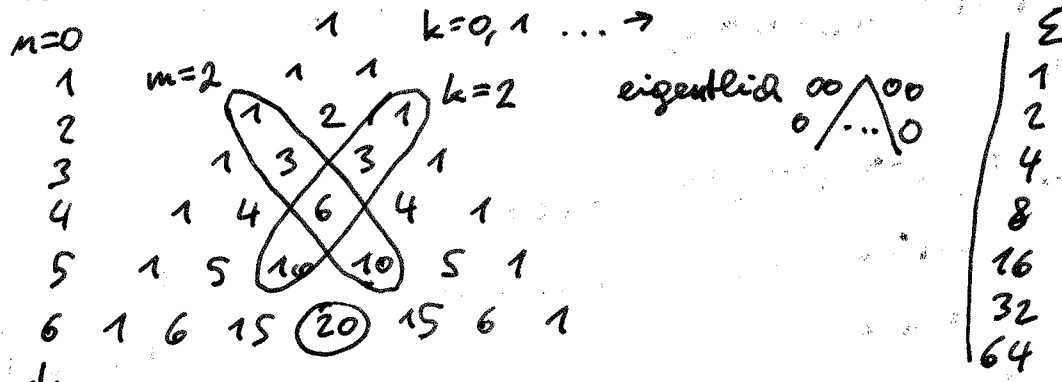 n=0 1 k=0, 1 ... → Σ
1 m=2 1 1 k=2 eigentlich 00 00 1
2 1 2 1 0 ... 0 2
3 1 3 3 1 4
4 1 4 6 4 1 8
5 1 5 10 10 5 1 16
6 1 6 15 20 15 6 1 32
↓ 64